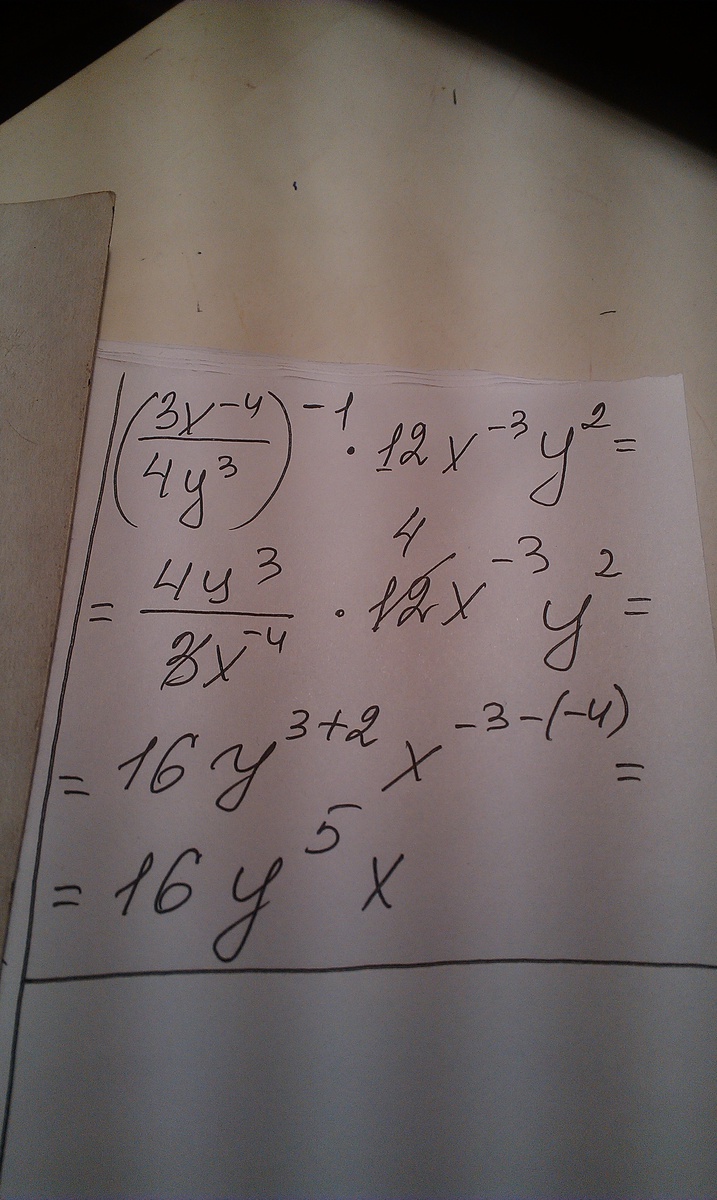 (3x⁻⁴/4y³)⁻¹ · 12x⁻³y² =
= 4y³/3x⁻⁴ · 12x⁻³y² = 4
= 16y³⁺²x⁻³⁻⁽⁻⁴⁾ =
= 16y⁵x